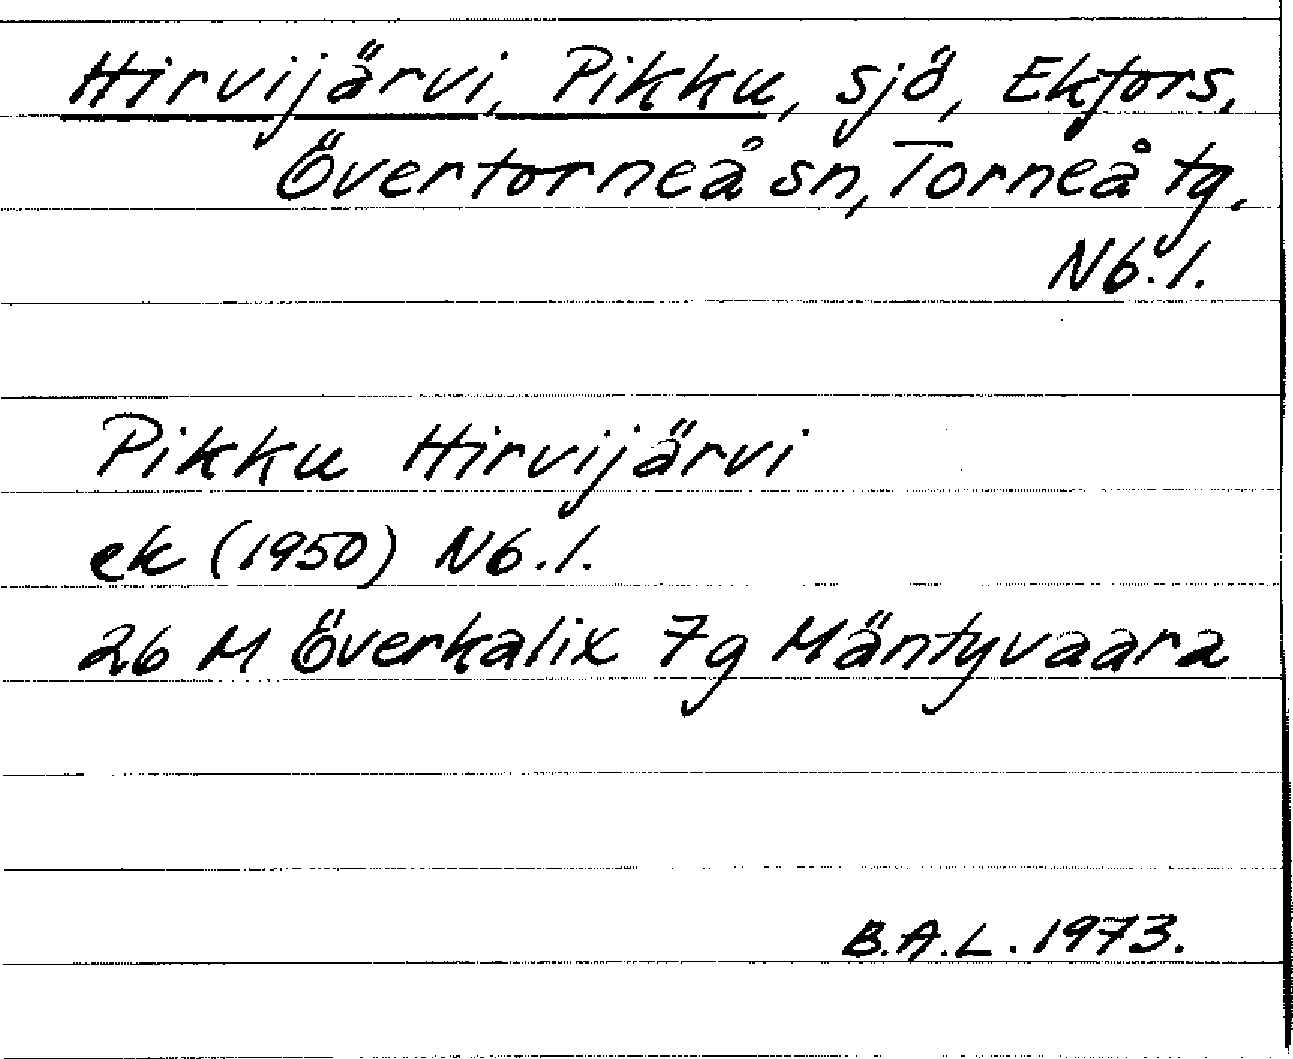 Hirvijärvi, Pikku, sjö, Ekfors,
Övertorneå sn, Torneå tg,
Nb.l.
Pikku Hirvijärvi
ek (1950) Nb.l.
26 M Överkalix 7g Mäntyvaara
B.A.L. 1973.